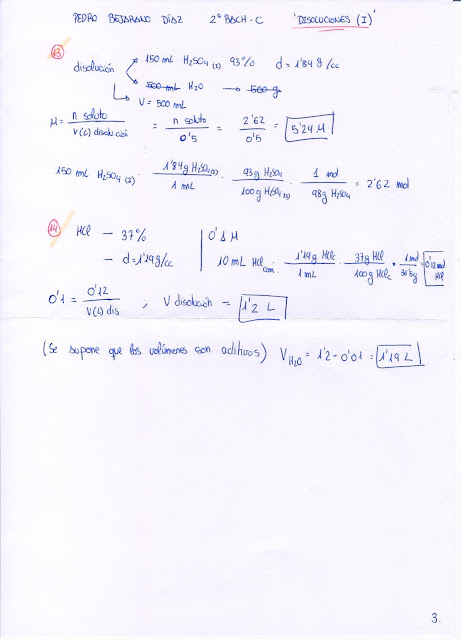 PEDRO BEJARANO DÍAZ 2º BACH-C 'DISOLUCIONES (I)'
13
150 mL H2SO4 (I) 93% d = 1'84 g/cc
disolución
500 mL H2O → 500 g
V = 500 mL
M = n soluto / V(L) disolución = n soluto / 0'5 = 2'62 / 0'5 = 5'24 M
150 mL H2SO4 (I) · 1'84g H2SO4(I) / 1 mL · 93g H2SO4 / 100g H2SO4(I) · 1 mol / 98g H2SO4 = 2'62 mol
14
HCl — 37% 0'1 M
— d = 1'19g/cc 10 mL HCl com · 1'19g HClc / 1 mL · 37g HCl / 100g HClc · 1 mol / 36'5g = 0'12 mol HCl
0'1 = 0'12 / V(L) dis , V disolución = 1'2 L
(Se supone que los volúmenes son aditivos) VH2O = 1'2 - 0'01 = 1'19 L
3.